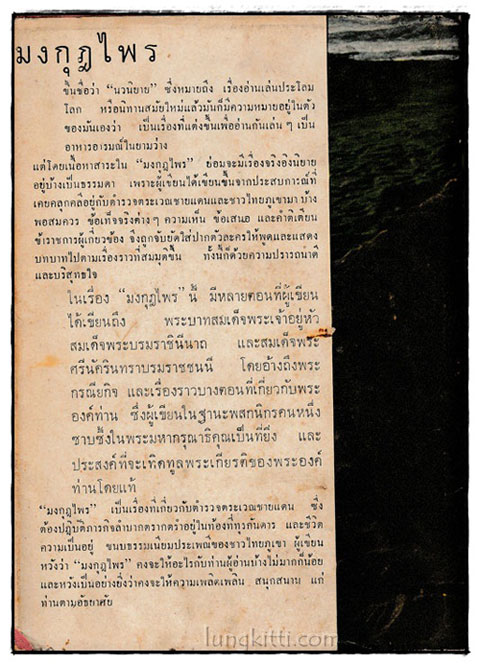 มงกุฎไพร
ขึ้นชื่อว่า “นวนิยาย” ซึ่งหมายถึง เรื่องอ่านเล่นประโลม
โลก หรือนิทานสมัยใหม่แล้วมันก็มีความหมายอยู่ในตัว
ของมันเองว่า เป็นเรื่องที่แต่งขึ้นเพื่ออ่านกันเล่น ๆ เป็น
อาหารอารมณ์ในยามว่าง
แต่โดยเนื้อหาสาระใน “มงกุฎไพร” ย่อมจะมีเรื่องจริงอิงนิยาย
อยู่บ้างเป็นธรรมดา เพราะผู้เขียนได้เขียนขึ้นจากประสบการณ์ที่
เคยคลุกคลีอยู่กับตำรวจตระเวณชายแดนและชาวไทยภูเขามาบ้าง
พอสมควร ข้อเท็จจริงต่างๆ ความเห็น ข้อเสนอ และคำติเตียน
ข้าราชการผู้เกี่ยวข้อง จึงถูกจับยัดใส่ปากตัวละครให้พูดและแสดง
บทบาทไปตามเรื่องราวที่สมมุติขึ้น ทั้งนี้ก็ด้วยความปรารถนาดี
และบริสุทธใจ
ในเรื่อง “มงกุฎไพร” นี้ มีหลายตอนที่ผู้เขียน
ได้เขียนถึง พระบาทสมเด็จพระเจ้าอยู่หัว
สมเด็จพระบรมราชินีนาถ และสมเด็จพระ
ศรีนัครินทราบรมราชชนนี โดยอ้างถึงพระ
กรณียกิจ และเรื่องราวบางตอนที่เกี่ยวกับพระ
องค์ท่าน ซึ่งผู้เขียนในฐานะพสกนิกรคนหนึ่ง
ซาบซึ้งในพระมหากรุณาธิคุณเป็นที่ยิ่ง และ
ประสงค์ที่จะเทิดทูลพระเกียรติของพระองค์
ท่านโดยแท้
“มงกุฎไพร” เป็นเรื่องที่เกี่ยวกับตำรวจตระเวณชายแดน ซึ่ง
ต้องปฏิบัติภารกิจลำบากตรากตรำอยู่ในท้องที่ทุรกันดาร และชีวิต
ความเป็นอยู่ ขนบธรรมเนียมประเพณีของชาวไทยภูเขา ผู้เขียน
หวังว่า “มงกุฎไพร” คงจะให้อะไรกับท่านผู้อ่านบ้างไม่มากก็น้อย
และหวังเป็นอย่างยิ่งว่าคงจะให้ความเพลิดเพลิน สนุกสนาน แก่
ท่านตามอัธยาศัย
lungkitti.com